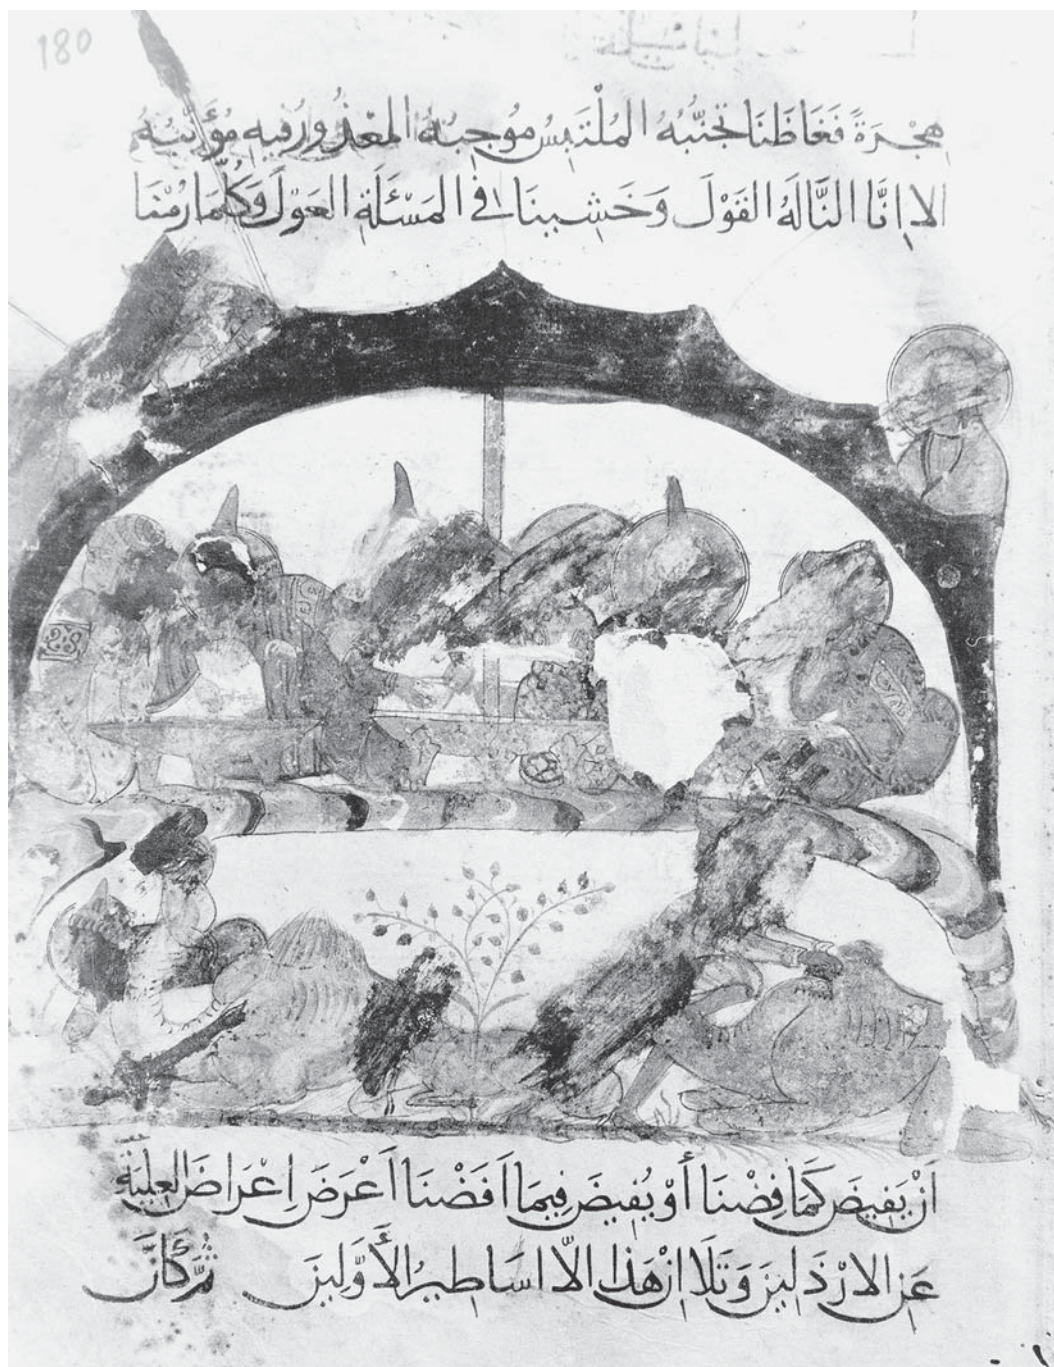 180
هِجْرَةً فَغَاظَنَا تَجَنُّبُهُ المُلْتَبِسُ مُوجِبُهُ المَعْذُورُ فِيهِ مُؤَنِّبُهُ
الا اِنَّا النَّا لَهُ القَوْلَ وَخَشِينَا فِي المَسْئَلَةِ العَوْلَ وَكُلَّمَا رُمْنَا
اَنْ يَفِيضَ كَمَا فِضْنَا أَوْ يُفِيضَ فِيمَا اَفَضْنَا اَعْرَضَ اِعْرَاضَ العِلْيَةِ
عَنِ الارْذَلِينَ وَتَلَا اِنْ هَذَا الاّ اسَاطِيرُ الأَوَّلِينَ ثُمَّ كَأَنَّ